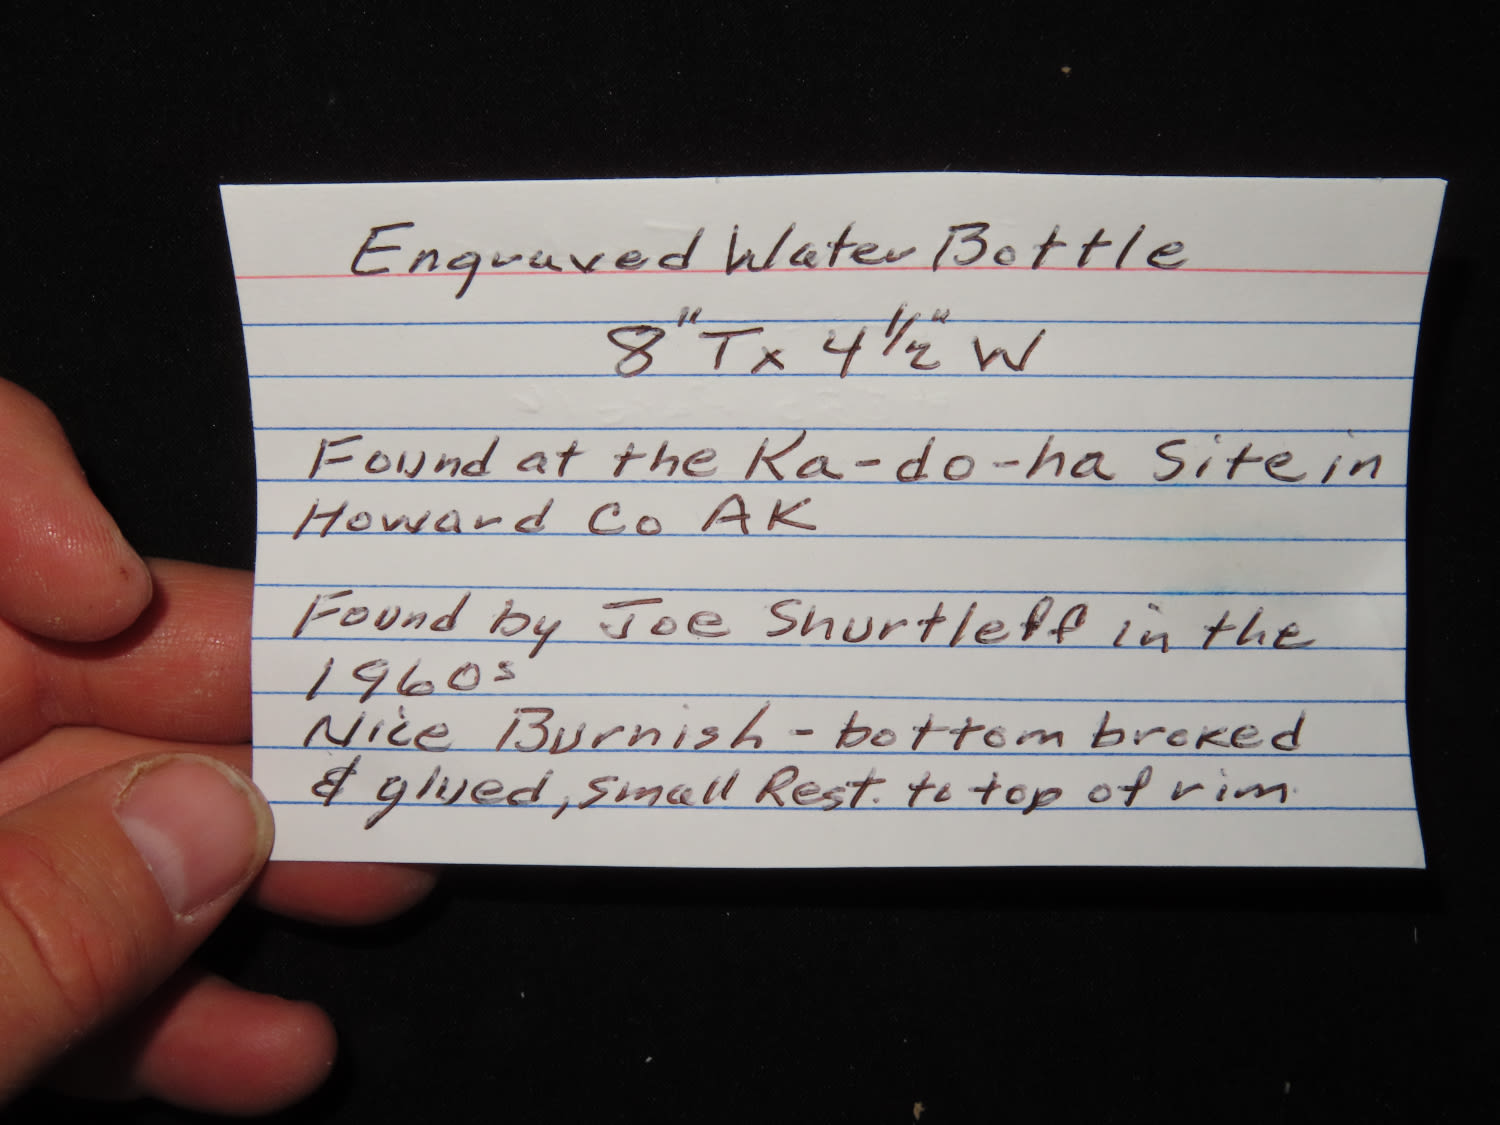 Engraved Water Bottle
8" T x 4 1/2" W
Found at the Ka-do-ha Site in
Howard Co AK
Found by Joe Shurtleff in the
1960s
Nice Burnish - bottom broked
& glued, small Rest. to top of rim